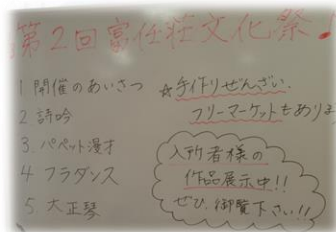 第2回富任荘文化祭!
1 開催のあいさつ
2 詩吟
3 パペット漫才
4 フラダンス
5 大正琴
☆手作りぜんざい、
フリーマーケットもあります
入所者様の
作品展示中!!
ぜひ、御覧下さい!!